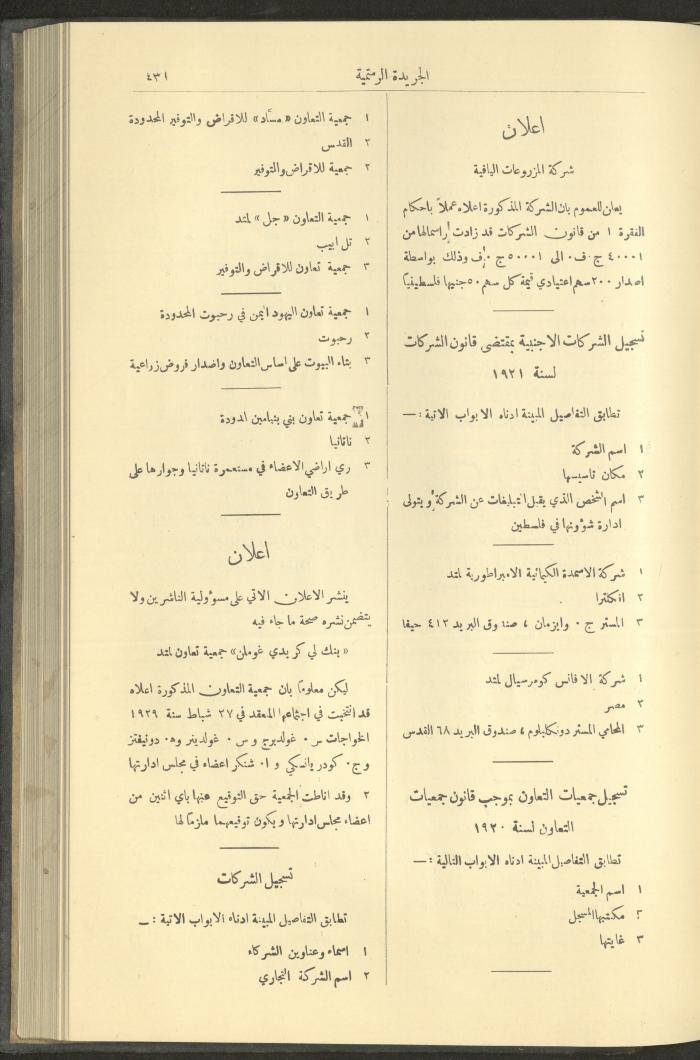 الجريدة الرسمية
٤٣١
اعلان
شركة المزروعات اليافية
يعلن للعموم بان الشركة المذكورة اعلاه عملاً باحكام
الفقرة ١ من قانون الشركات قد زادت رأسمالها من
٤٠٠٠١ ج٠ف٠ الى ٥٠٠٠١ ج٠ف وذلك بواسطة
اصدار ٢٠٠ سهم اعتيادي قيمة كل سهم ٥٠ جنيها فلسطينياً
تسجيل الشركات الاجنبية بمقتضى قانون الشركات
لسنة ١٩٢١
تطابق التفاصيل المبينة ادناه الابواب الاتية : —
١ اسم الشركة
٢ مكان تاسيسها
٣ اسم الشخص الذي يقبل التبليغات عن الشركة ويتولى
ادارة شؤونها في فلسطين
١ شركة الاسمدة الكيمائية الامبراطورية لمتد
٢ انكلترا
٣ المستر ج٠ وايزمان ، صندوق البريد ٤١٢ حيفا
١ شركة الافانس كومرسيال لمتد
٢ مصر
٣ المحامي المستر دونكلبلوم ، صندوق البريد ٦٨ القدس
تسجيل جمعيات التعاون بموجب قانون جمعيات
التعاون لسنة ١٩٢٠
تطابق التفاصيل المبينة ادناه الابواب التالية : —
١ اسم الجمعية
٢ مكتبها المسجل
٣ غايتها
١ جمعية التعاون «مسّاد» للاقراض والتوفير المحدودة
٢ القدس
٣ جمعية للاقراض والتوفير
١ جمعية التعاون «جل» لمتد
٢ تل ابيب
٣ جمعية تعاون للاقراض والتوفير
١ جمعية تعاون اليهود اليمن في رحبوت المحدودة
٢ رحبوت
٣ بناء البيوت على اساس التعاون واصدار قروض زراعية
١ جمعية تعاون بني بنيامين المدودة
٢ ناتانيا
٣ ري اراضي الاعضاء في مستعمرة ناتانيا وجوارها على
طريق التعاون
اعلان
ينشر الاعلان الاتي على مسؤولية الناشرين ولا
يتضمن نشره صحة ما جاء فيه
«بنك لي كريدي غوملن» جمعية تعاون لمتد
ليكن معلوماً بان جمعية التعاون المذكورة اعلاه
قد انتخبت في اجتماعها المنعقد في ٢٧ شباط سنة ١٩٢٩
الخواجات س٠ غولدبرج و س٠ غولدينر و ه٠ دونيفتز
و ج٠ كودريانسكي و ا٠ شنكر اعضاء في مجلس ادارتها
٢ وقد اناطت الجمعية حق التوقيع عنها باي اثنين من
اعضاء مجلس ادارتها ويكون توقيعهما ملزماً لها
تسجيل الشركات
تطابق التفاصيل المبينة ادناه الابواب الاتية : —
١ اسماء وعناوين الشركاء
٢ اسم الشركة التجاري